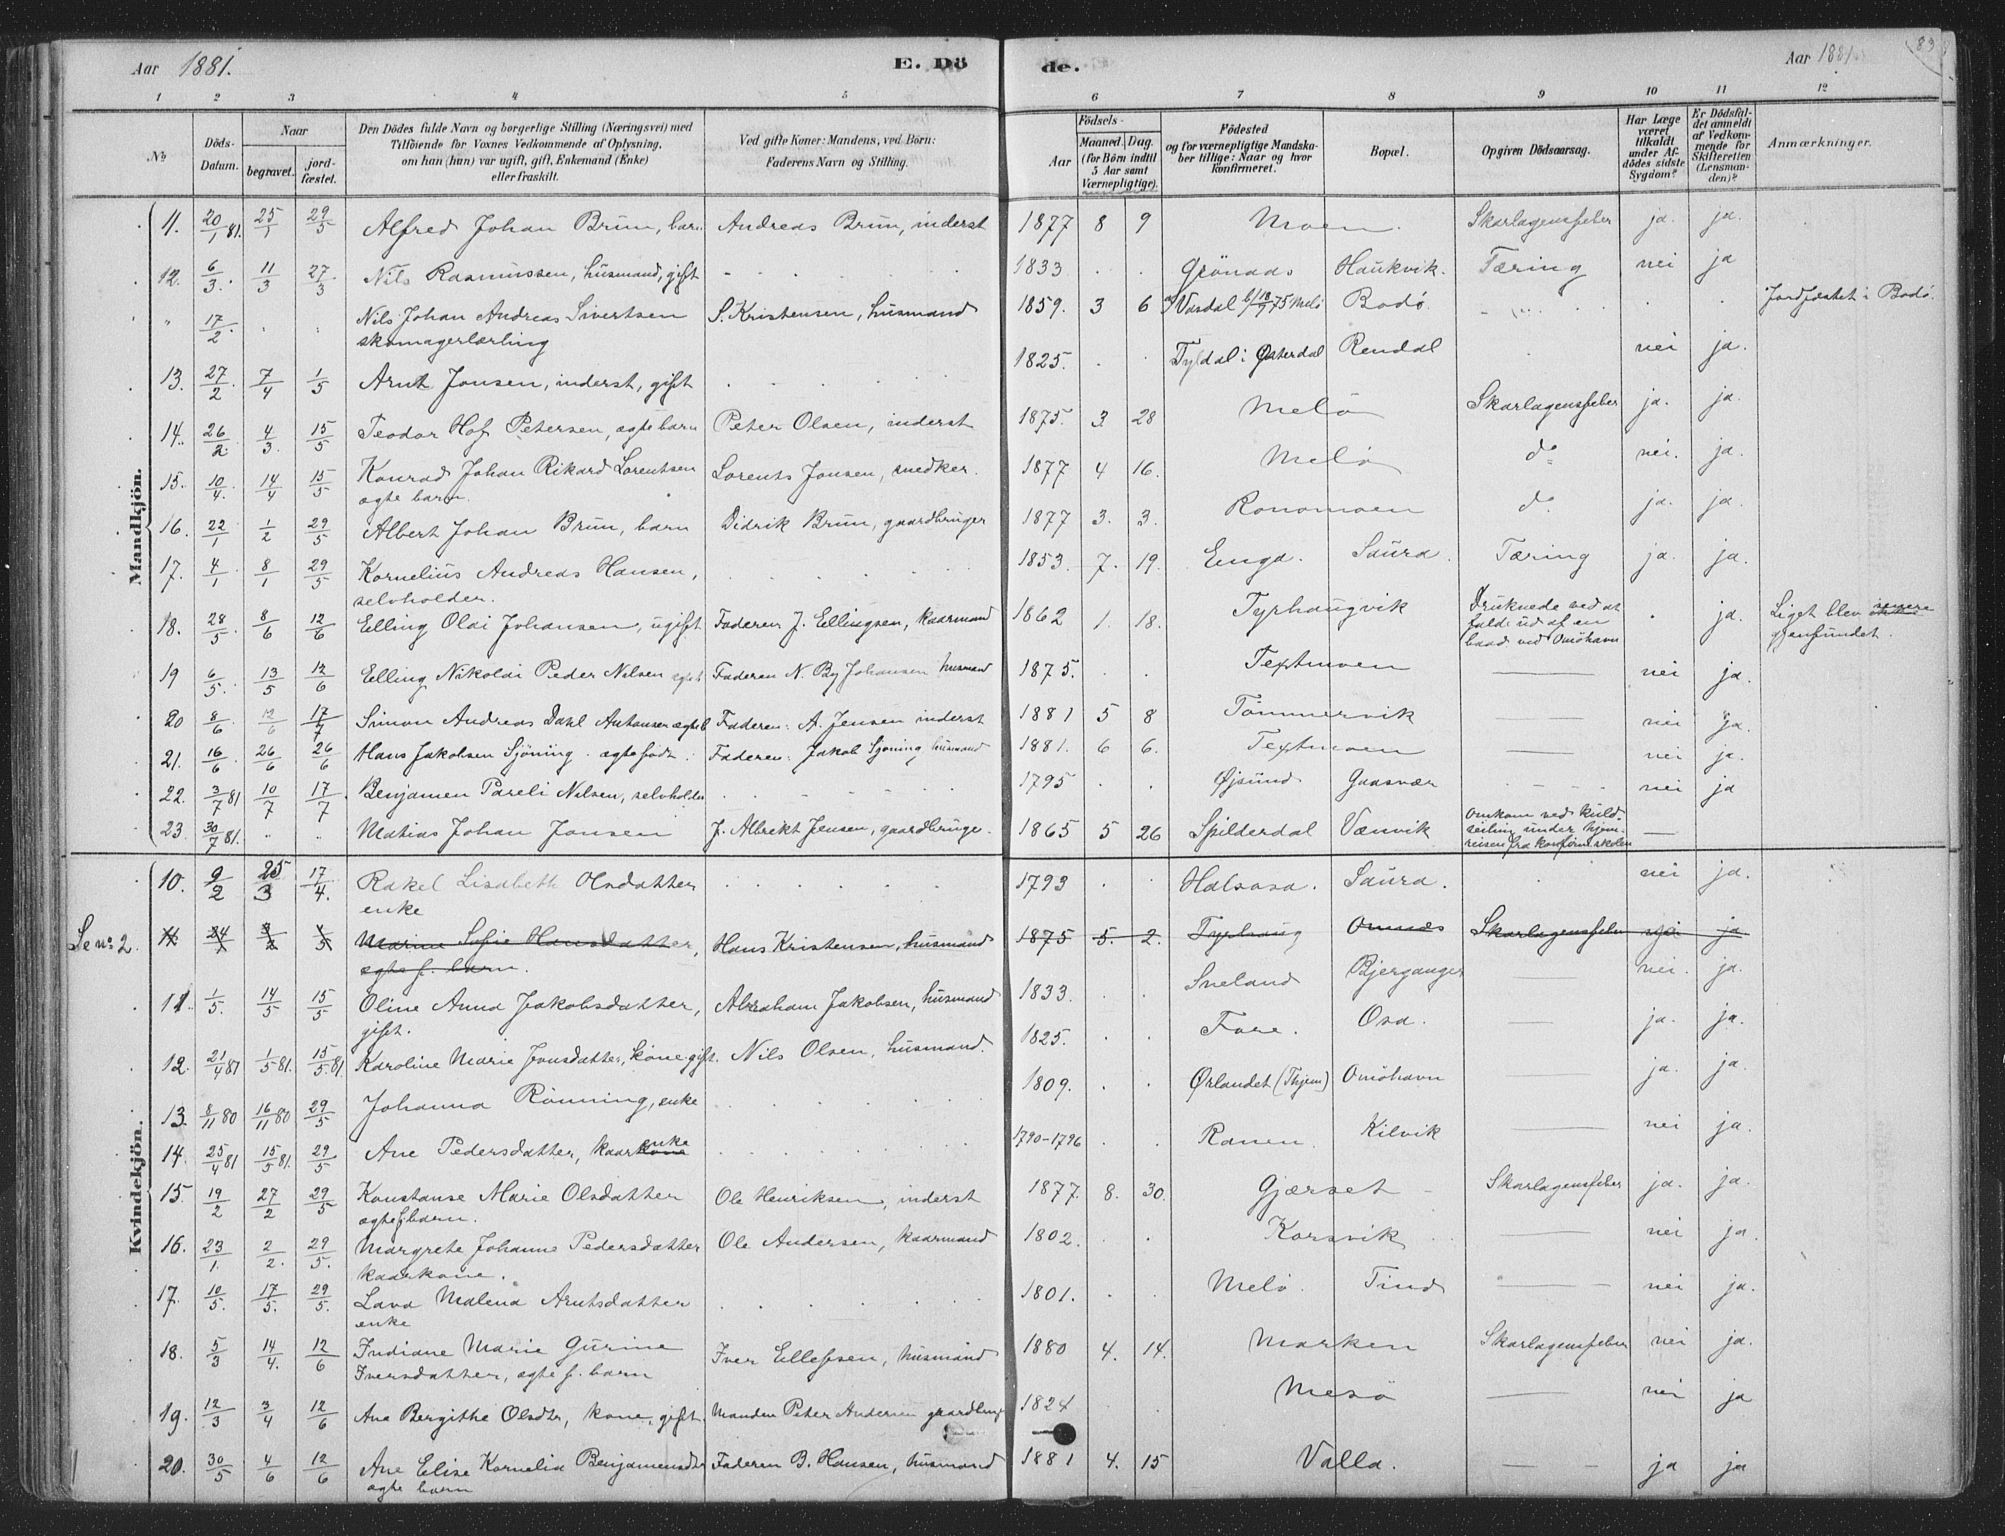 Aar 1881. E. Dö de. Aar 1881. 83
1 2 3 4 5 6 7 8 9 10 11 12
No. Döds-Datum. Naar begravet. jord-fæstet. Den Dödes fulde Navn og borgerlige Stilling (Næringsvei) med Tilföiende for Voxnes Vedkommende af Oplysning, om han (hun) var ugift, gift, Enkemand (Enke) eller fraskilt. Ved gifte Koner: Mandens, ved Börn: Faderens Navn og Stilling. Födsels- Aar Maaned. Dag. (for Börn indtil 5 Aar samt Værnepligtige). Födested og for værnepligtige Mandskaber tillige: Naar og hvor konfirmeret. Bopæl. Opgiven Dödsaarsag. Har Læge været tilkaldt under Afdödes sidste Sygdom? Er Dödsfaldet anmeldt af Vedkommende for Skifteretten (Lensmanden)? Anmærkninger.
Mandkjön.
11. 20/1 81. 25/1 29/5 Alfred Johan Brun, barn Andreas Brun, inderst 1877 8 9 Moen. Skarlagensfeber ja. ja.
12. 6/3. 11/3 27/3 Nils Rasmussen, husmand, gift - 1833 Grönaas Haukvik. Tæring nei ja
" 17/2. Nils Johan Andreas Sivertsen S. Kristensen, husmand 1859. 3 6 Vasdal 18/9 75 Melö Bodö. Jordfæstet i Bodö.
skomagerlærling
13. 27/2 7/4 1/5 Arnt Jonsen, inderst, gift 1825. Tyldal i Østerdal Rendal nei ja.
14. 26/2 4/3. 15/5 Teodor Hof Petersen, ægte barn Peter Olsen, inderst 1875. 3 28 Melö Skarlagensfeber ja. ja.
15. 10/4. 14/4 15/5 Konrad Johan Rikard Lorentsen Lorents Jonsen, snedker. 1877 4 16. Melö do nei. ja.
ægte barn.
16. 22/1 1/2 29/5 Albert Johan Brun, barn Didrik Brun, gaardbruger 1877 3. 3. Ronomoen do ja. ja.
17. 4/1 8/1 29/5 Kornelius Andreas Hansen, 1853. 7. 19. Enga. Saura. Tæring ja. ja.
selvholder.
18. 28/5. 8/6 12/6 Elling Olai Johansen, ugift Faderen J. Ellingsen, kaarmand 1862 1. 18. Tyrhaugvik Druknede ved at falde ud af en baad ved Omöhavn ja. Liget blev senere gjenfundet.
19 6/5. 13/5 12/6 Elling Nikolai Peder Nilsen ægtef. Faderen N. By Johansen husmand 1875. Textmoen nei ja.
20 8/6 12/6 17/7 Simon Andreas Dahl Antonsen ægte b Faderen: A. Jensen inderst 1881 5 8 Tömmervik nei ja.
21. 16/6 26/6 26/6 Hans Jakobsen Sjöning. ægtefödt. Faderen: Jakob Sjöning, husmand 1881. 6 6. Textmoen nei ja.
22. 3/7 81 10/7 17/7 Benjamen Pareli Nilsen, selvholder 1795 Øjsund Gaasvær nei ja
23. 30/7 81. Matias Johan Jonsen J. Albrekt Jensen, gaardbruge. 1865 5 26 Spilderdal Vænvik Omkom ved kuldseiling under hjemreisen fra konfirm.skolen
Kvindekjön.
10. 9/2 25/3 17/4. Rakel Lisabeth Olsdatter 1793 Halsosa. Saura. nei ja.
enke
Se no. 2. 11 24/1 3/2 1/5 Marine Sofie Hansdatter, Hans Kristensen, husmand 1875 5. 2. Tyrhaug Omnæs Skarlagensfeber nei ja
ægte f. barn.
11. 1/5. 14/5 15/5 Oline Anna Jakobsdatter, Abraham Jakobsen, husmand 1833. Sneland Bjerganger nei. ja.
gift.
12. 21/4 81 1/5 81. 15/5. 81. Karoline Marie Jonsdatter, kone gift. Nils Olsen, husmand. 1825. Fore. Osa. ja. ja.
13. 8/11 80 16/11 80 29/5 Johanna Rönning, enke 1809. Ørlandet (Thjem) Omöhavn ja. ja.
14. 25/4 81 15/5 81. 29/5 Ane Pedersdatter, kaarkone enke 1790-1796 Ranen. Kilvik nei ja.
15. 19/2 27/2 29/5 Konstanse Marie Olsdatter Ole Henriksen, inderst 1877. 8. 30. Gjærset Skarlagensfeber ja. ja.
ægtef barn.
16. 23/1. 2/2. 29/5. Margrete Johanne Pedersdatter Ole Andersen, kaarmand 1802. Korsvik nei ja.
kaarkone.
17. 10/5. 17/5. 29/5. Lava Malena Arntsdatter 1801. Melö Tind nei ja.
enke
18. 5/3 14/4. 12/6 Indiane Marie Gurine Iver Ellefsen, husmand 1880 4. 14. Marken Skarlagensfeber nei ja.
Iversdatter, ægte f. barn
19. 12/3 3/4 12/6 Ane Bergithe Olsdtr, kone, gift. Manden Peter Andersen gaardbrug 1824 Mesö nei ja
20. 30/5 4/6 12/6 Ane Elise Kornelia Benjamensdtr Faderen B. Hansen, husmand 1881 4. 15 Valla. ja ja
ægte barn